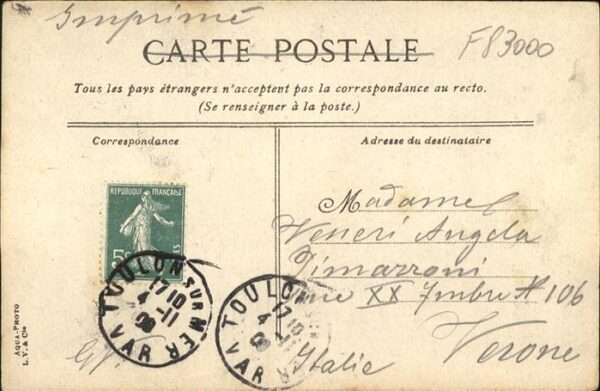 Imprimé
CARTE POSTALE
F83000
Tous les pays étrangers n'acceptent pas la correspondance au recto.
(Se renseigner à la poste.)
Correspondance
Adresse du destinataire
REPUBLIQUE FRANÇAISE
5c
TOULON SUR MER
17 10
4 -11
09
VAR
TOULON
17 10
4 -11
09
VAR
Madame
Veneri Angela
XX 7mbre N 106
Italie
Verone
AQUA-PHOTO
L. V. & Cie